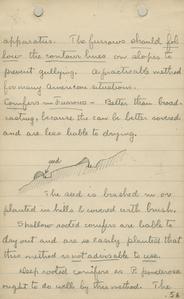 apparatus. The furrows should fol
low the contour lines on slopes to
prevent gullying. A practicable method
for many American situations.
Conifers in Furrows - Better than broad-
casting, because the can be better covered
and are less liable to drying.
seed
The seed is brushed in or
planted in hills & covered with brush.
Shallow rooted conifers are liable to
dry out and are so easily planted that
this method is not advisable to use.
Deep rooted conifers as P. ponderosa
ought to do well by this method. The